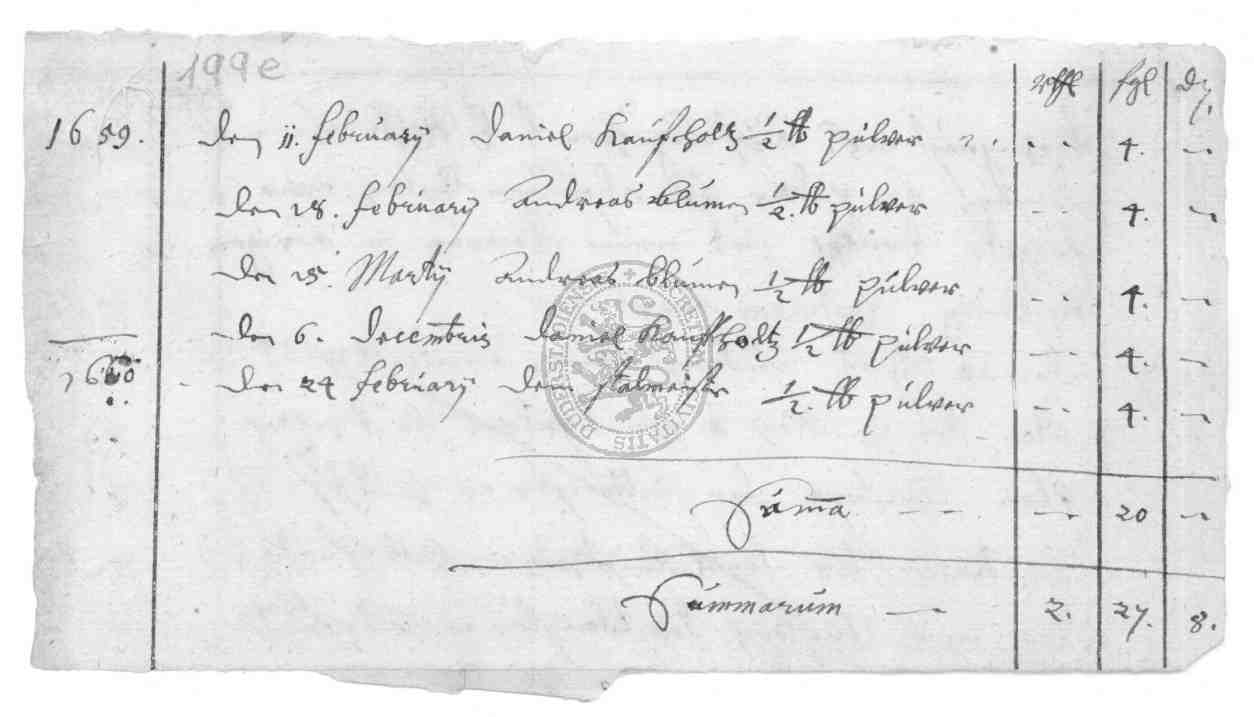 199e
rthl fgl dȝ.
1659. den 11. february Daniel Kaufholtz ½ ℔ pulver - - 4. -
den 28. february Andreas blumen ½. ℔ pulver - - 4. -
den 15. Martij Andreas blumen ½ ℔ pulver - - 4. -
den 6. decembris Daniel Kaufholtz ½ ℔ pulver - - 4. -
1660. den 24 february dem stalmeister ½. ℔ pulver - - 4. -
Summa - - - 20 -
Summarum - 2. 27. 8.